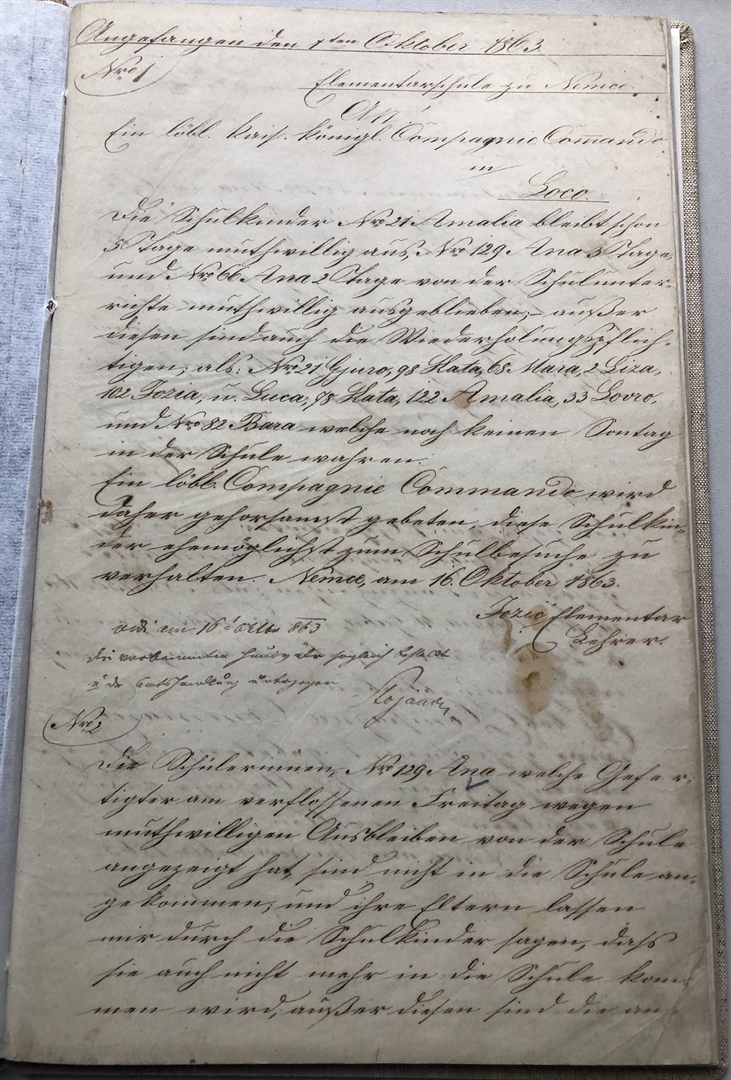 Angefangen den 1ten Oktober 1863.
Nro 1
Elementarschule zu Nemce.
An
Ein löbl. kais. königl. Compagnie Comando
in
Loco.
Die Schulkinder Nro 21 Amalia bleibt schon
5 Tage muthwillig aus, Nro 129 Ana 3 Tage,
und Nro 66 Ana 2 Tage von der Schulunter-
richte muthwillig ausgeblieben, – außer
diesen sind auch die Wiederholungspflich-
tigen, als: Nro 21 Gjuro, 98 Kata, 68 Mara, 2 Liza,
102 Jozia, u. Luca, 98 Kata, 122 Amalia, 33 Lovro,
und Nro 82 Bara welche noch keinen Sontag
in der Schule wahren.
Ein löbl. Compagnie Commando wird
daher gehorsamst gebeten, diese Schulkin-
der ehemöglichst zum Schulbesuche zu
verhalten. Nemce, am 16. Oktober 1863.
Jozić Elementar
Lehrer.
am 16 863
die
u der Amtshandlung
Nro 2
Die Schülerinnen, Nro 129 Ana welche Gefer-
tigter am verflossenen Freitag wegen
muthwilligen Ausbleiben von der Schule
angezeigt hat, sind nicht in die Schule an-
gekommen, und ihre Eltern lassen
mir durch die Schulkinder sagen, dass
sie auch nicht mehr in die Schule kom-
men wird, außer diesen sind die an-